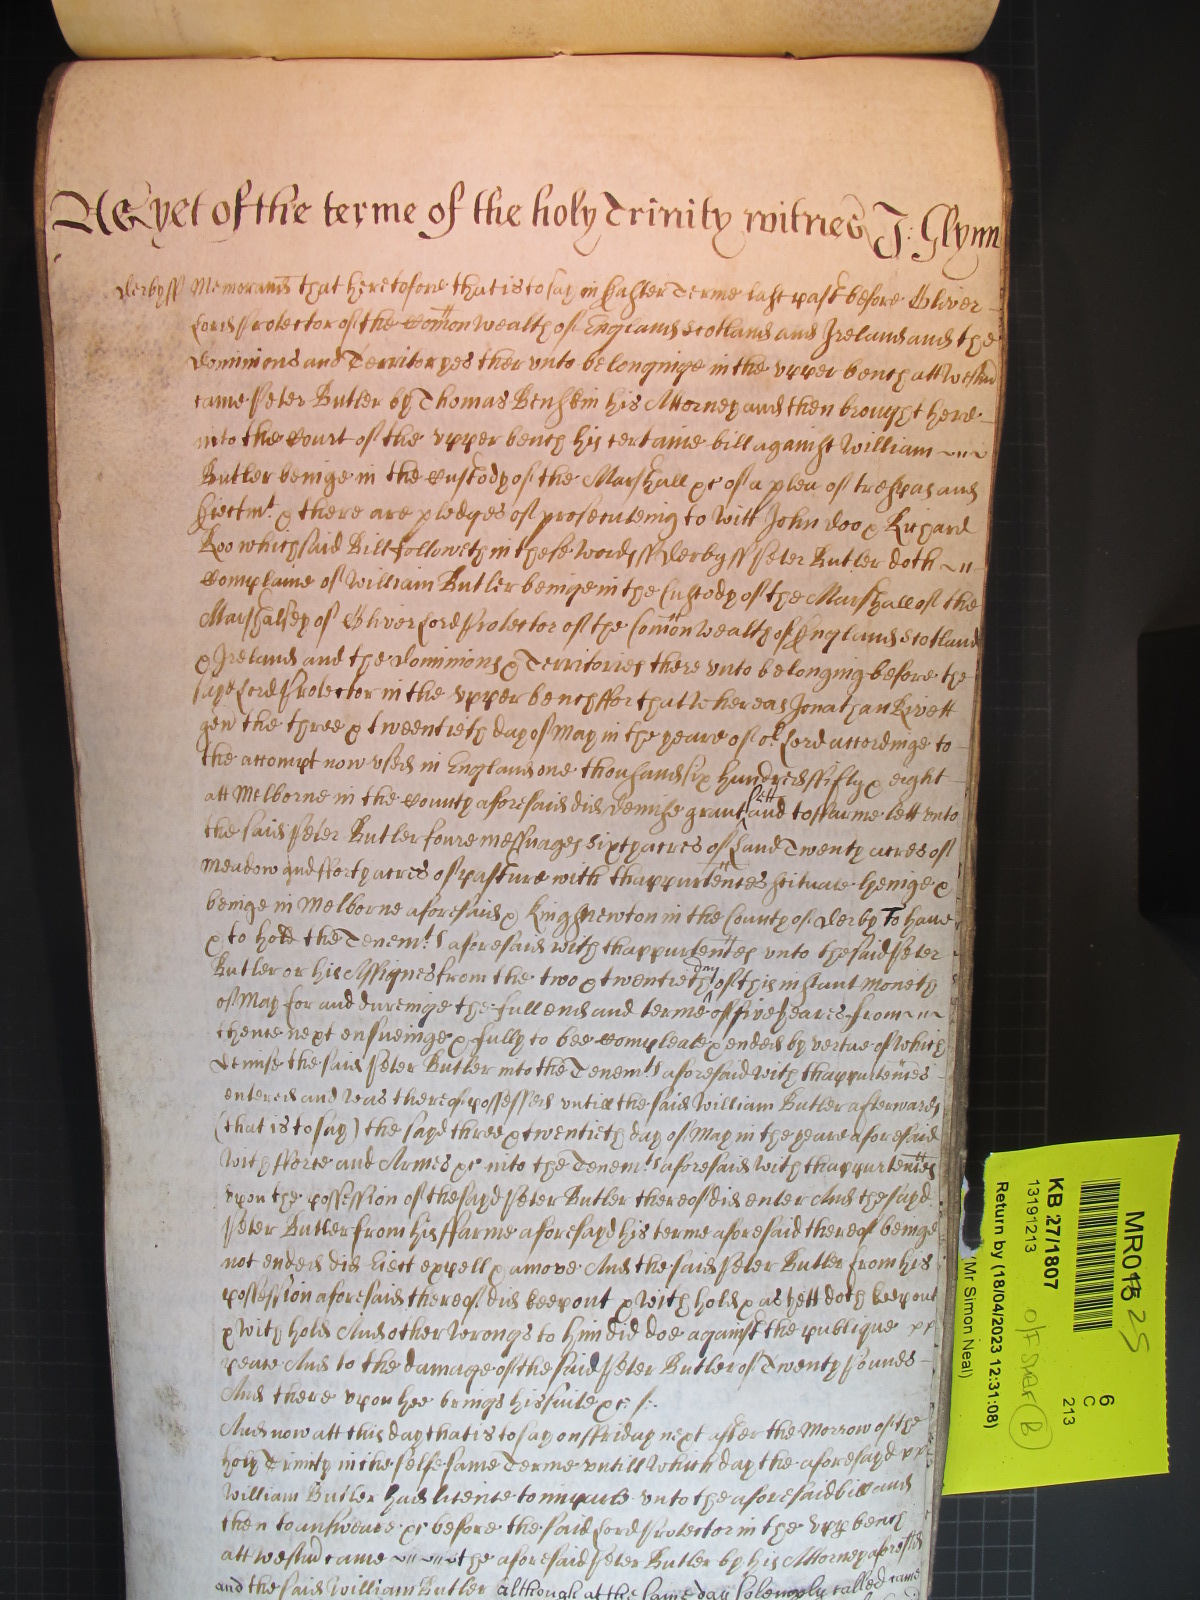 As yet of the terme of the holy Trinity witnes J: Glynn
Derbyss Memorand that heretofore that is to say in Easter Terme last past before Oliver
Lord Protector of the Comon Wealth of England Scotland and Ireland and the
Dominions and Territoryes ther unto belonginge in the upper bench att Westm
came Peter Butler by Thomas his Attorney and then brought here
into the Court of the upper bench his certaine bill against William
Butler beinge in the custody of the Marshall &c of a plea of trespas and
Eiectmt & there are pledges of prosecuteing to Witt John Doo & Richard
Roo which said Bill followeth in these Words ss Derbyss Peter Butler doth
Complaine of William Butler beinge in the Custody of the Marshall of the
Marshalsey of Oliver Lord Protector of the Comon Wealth of England Scotland
& Ireland and the Dominions & Territories there unto belonging before the
sayd Lord Protector in the Upper bench ffor that Whereas Jonathan Rivett
gen the three & tweentieth day of May in the yeare of or Lord accordinge to
the accompt now used in England one thousand six hundred ffifty & eight
att Melborne in the County aforesaid did demise grant sett and to ffarme lett unto
the said Peter Butler foure messuages sixty acres of Land Twenty acres of
meadow and fforty acres of pasture with thappurtences scituate lyeinge &
beinge in Melborne aforesaid & Kings Newton in the County of Derby To have
& to hold the Tenemts aforesaid with thappurtences unto the said Peter
Butler or his Assignes from the two & twentieth day of this instant moneth
of May for and dureinge the full end and terme of five yeares from
thence next ensueinge & fully to bee compleate & ended by vertue of which
demise the said Peter Butler into the Tenemts aforesaid with thappurtences
entered and was thereof possessed untill the said William Butler afterwards
(that is to say) the sayd three & twentieth day of May in the yeare aforesaid
with fforce and Armes &c into the Tenemts aforesaid with thappurtences
upon the possession of the sayd Peter Butler thereof did enter And the sayd
Peter Butler from his ffarme aforesayd his terme aforesaid thereof beinge
not ended did Eiect expell & amove And the said Peter Butler from his
possession aforesaid thereof did keep out & With hold & as yett doth keep out
& with hold And other Wrongs to him did doe against the publique
peace And to the damage of the said Peter Butler of Twenty Pounds
And there upon hee brings his suite &c
And now att this day that is to say on ffriday next after the Morrow of the
holy Trinity in the selfe same Terme untill Which day the aforesayd
William Butler had licence to imparle unto the aforesaid bill and
then to answeare &c before the said Lord Protector in the Upp bench
att Westm came the aforesaid Peter Butler by his Attorney aforesaid
and the said William Butler although at the same day solemnly called came
MR018 25
6
C
213
KB 27/1807
13191213
Return by (18/04/2023 12:31:08)
(Mr Simon Neal)
B